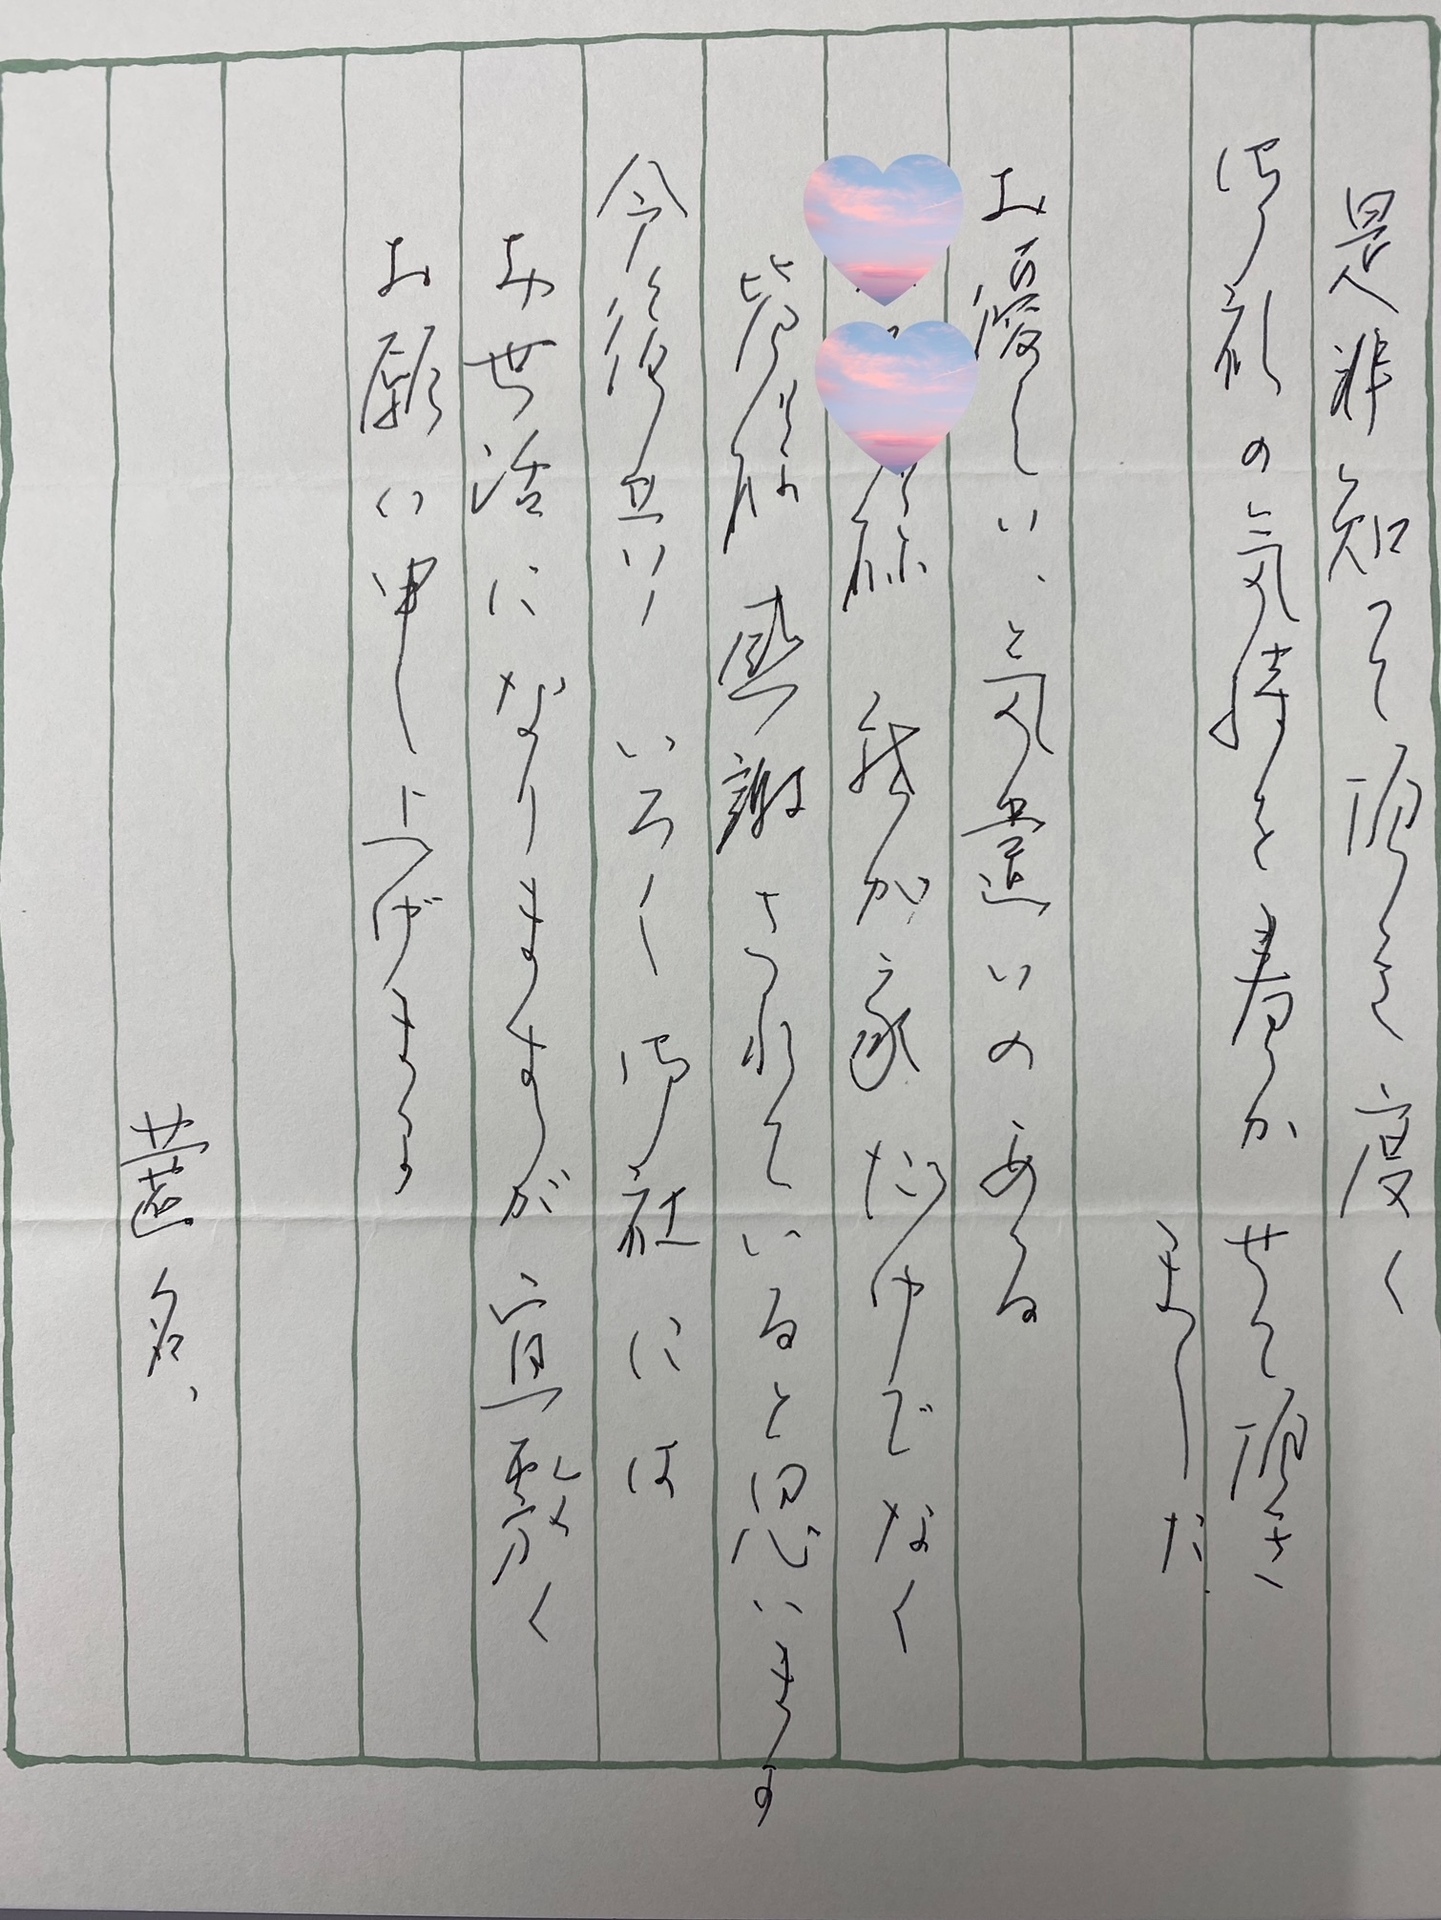 是非知って頂き度く
御礼の気持を書かせて頂き
ました
お優しい、と気遣いのある
様 我が家だけでなく
皆様 感謝されていると思います
今後共 いろいろ御社には
お世話になりますが 宜敷く
お願い申し上げます